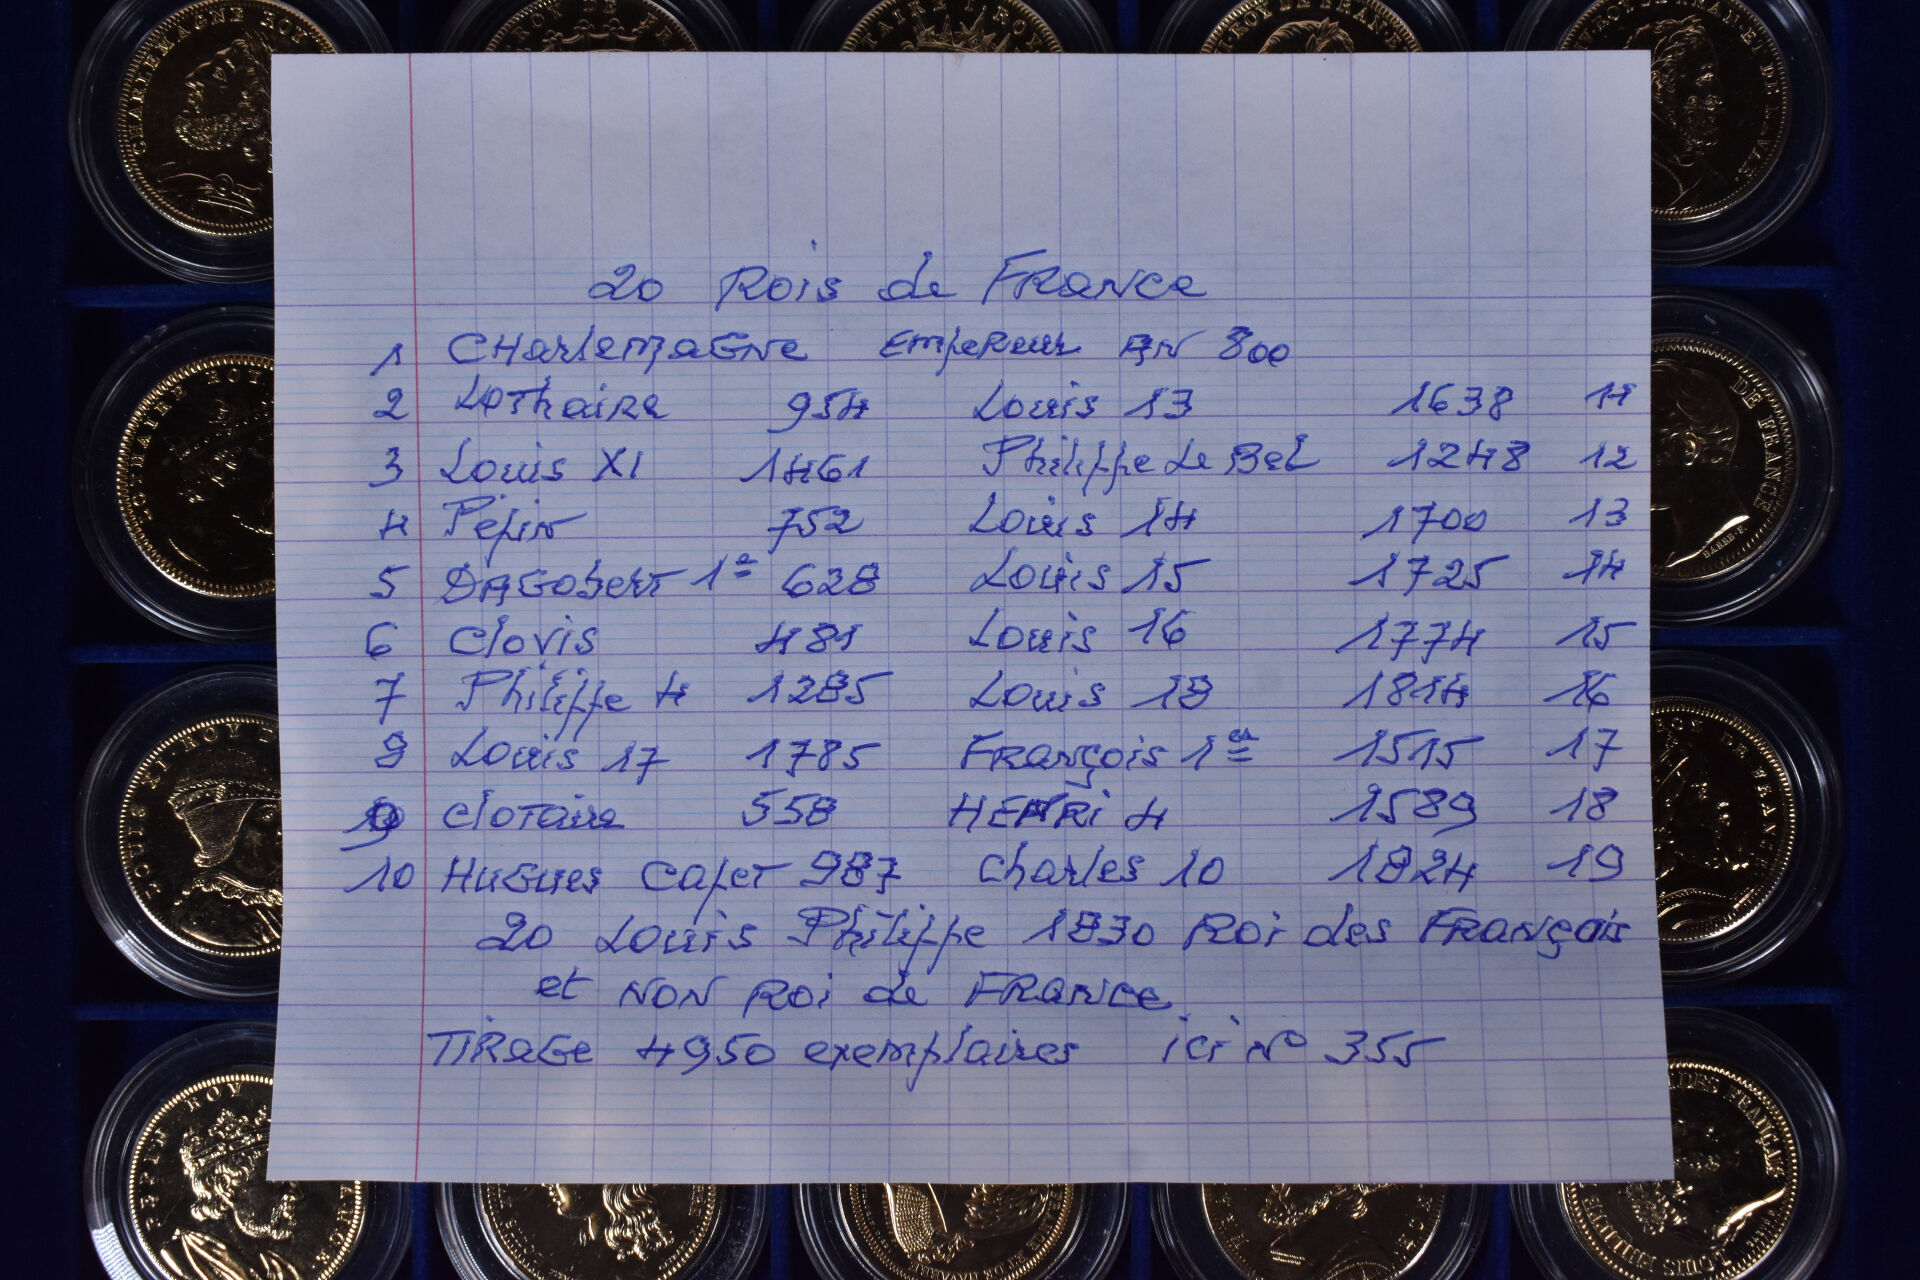 CHARLEMAGNE ROY
20 Rois de FRANCE
1 CHarlemagne empereur AN 800
2 Lothaire 954 Louis 13 1638 11
3 Louis XI 1461 Philippe Le Bel 1248 12
4 Pépin 752 Louis 14 1700 13
5 DAGobert 1er 628 Louis 15 1725 14
6 Clovis 481 Louis 16 1774 15
7 Philippe 4 1285 Louis 18 1814 16
9 Louis 17 1785 François 1er 1515 17
9 Clotaire 558 HENRi 4 1589 18
10 Hugues Capet 987 Charles 10 1824 19
20 Louis Philippe 1830 Roi des Français
et NON Roi de FRANCE
TIRAGE 4950 exemplaires ici N° 355
LOTHAIRE ROY
DE FRANCE
BARRE F.
LOUIS XI ROY
PEPIN ROY